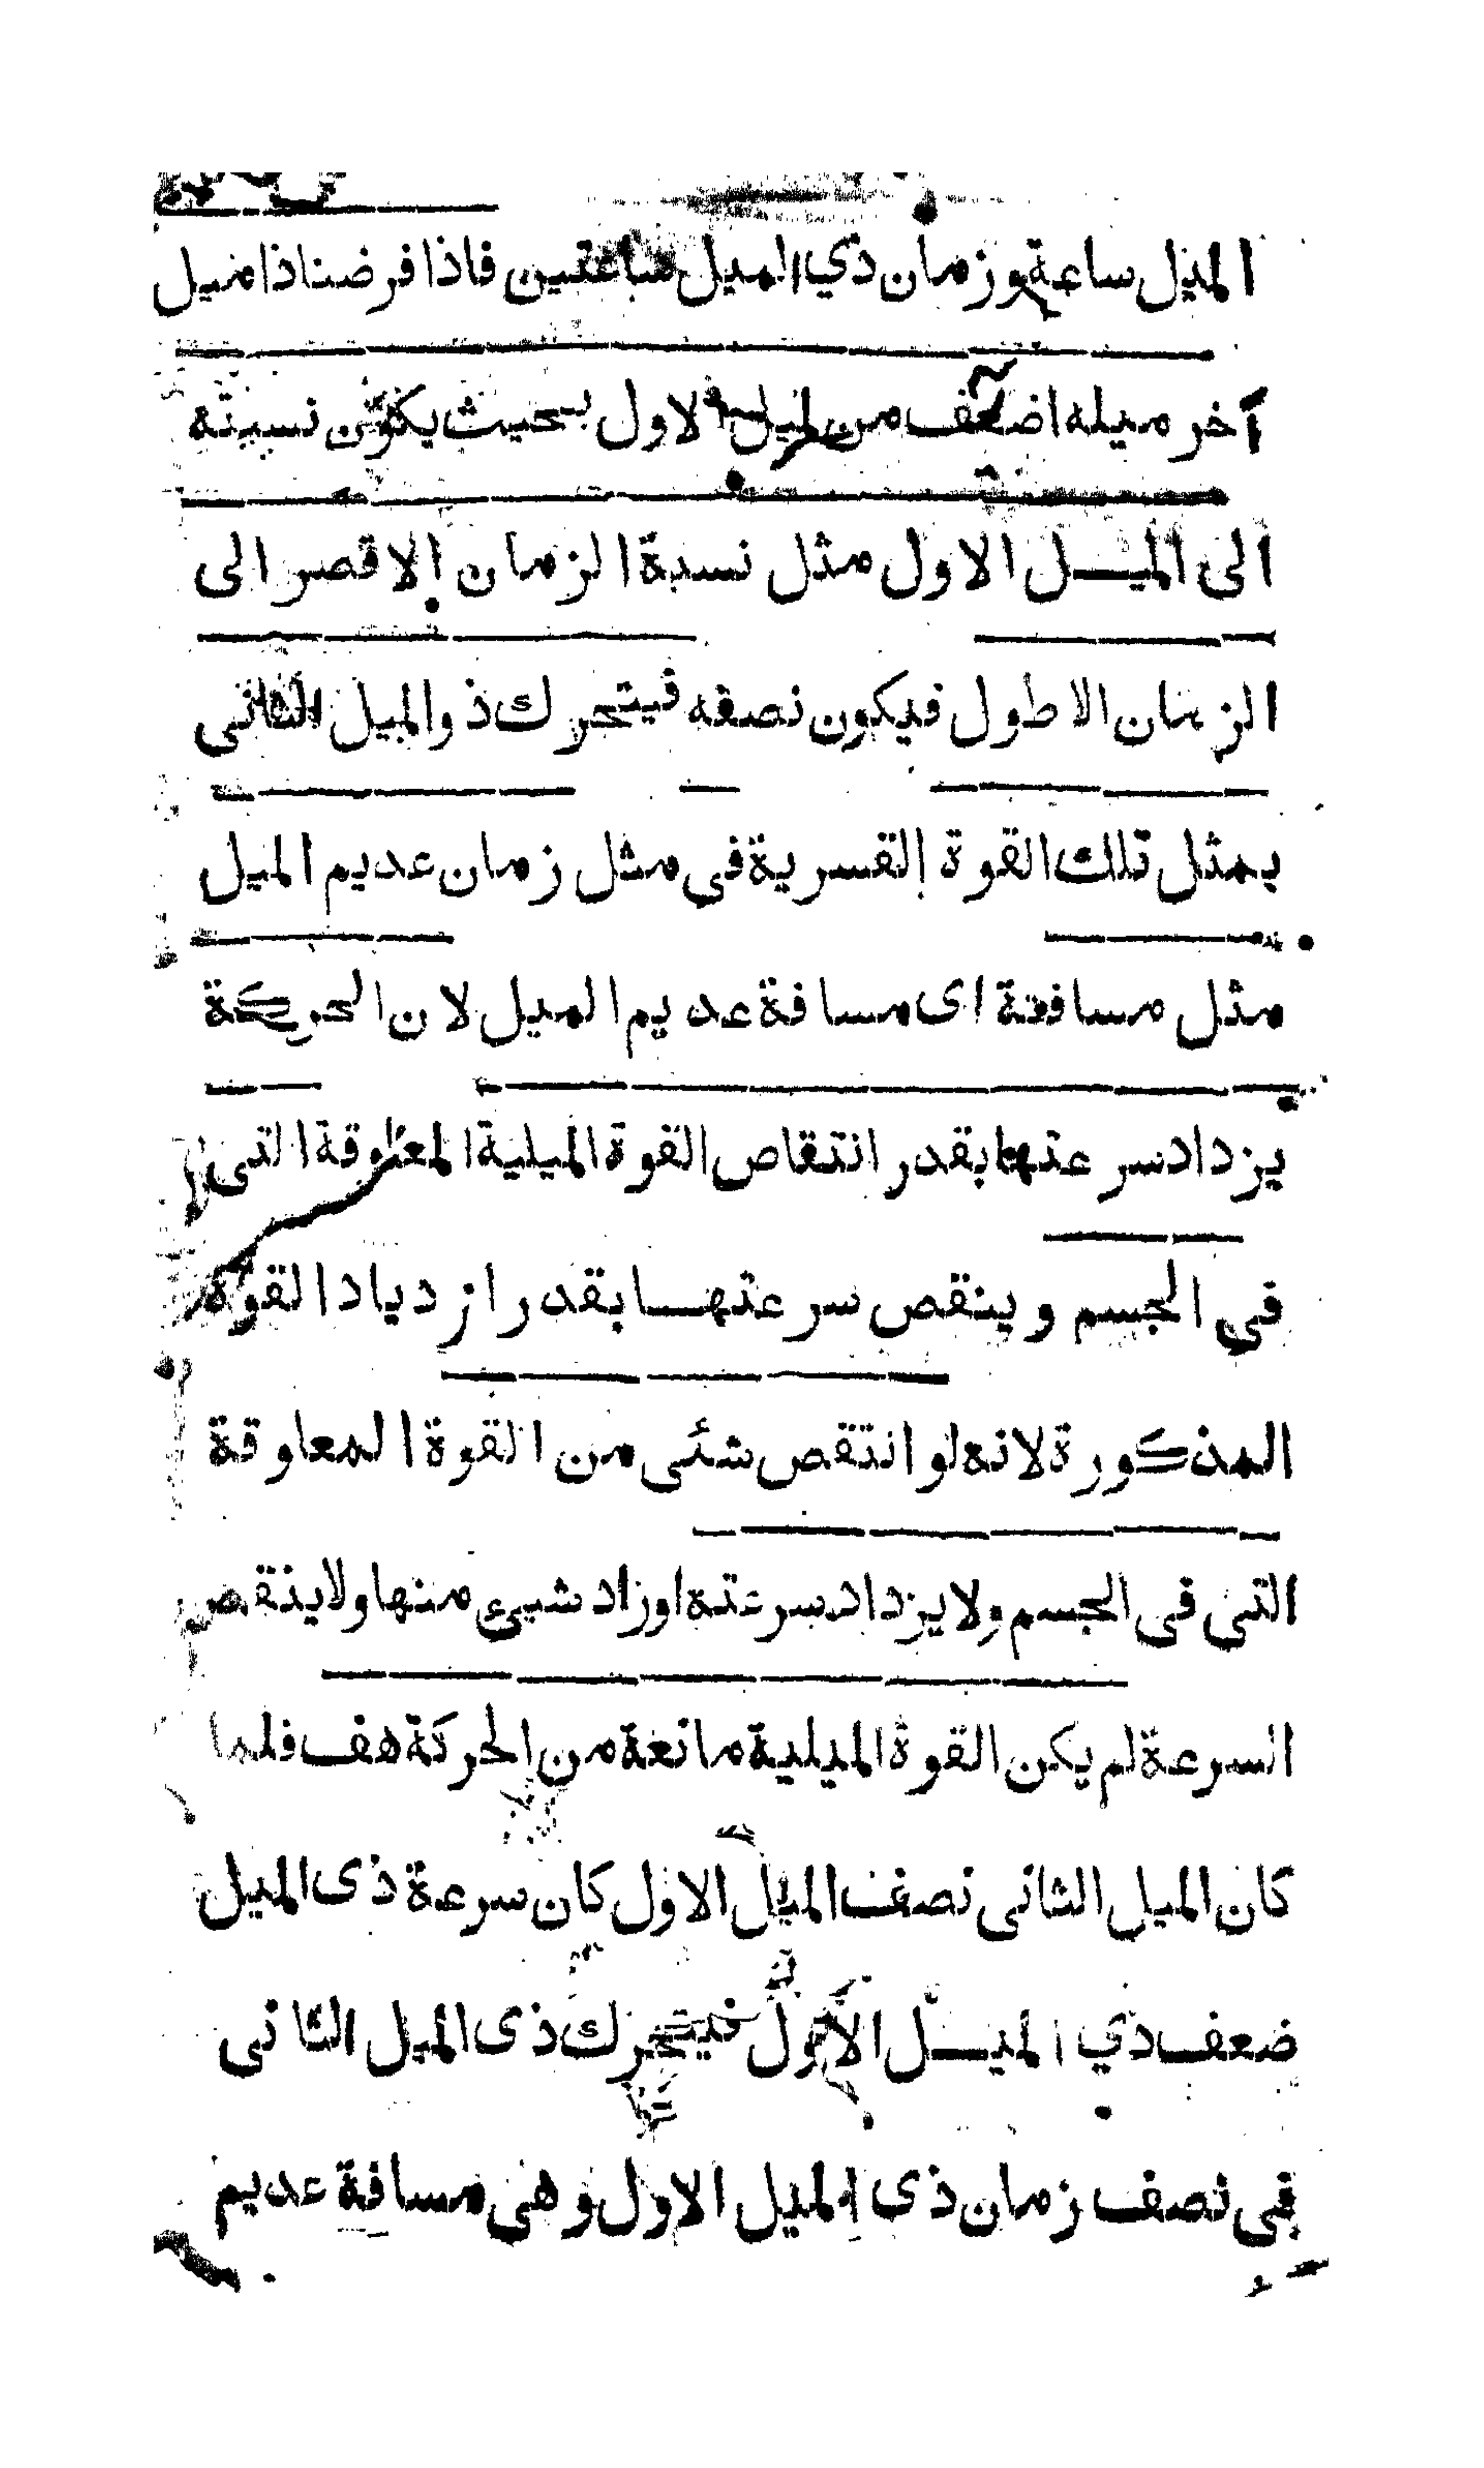 الميل ساعة وزمان ذي الميل ساعتين فاذا فرضنا ذا ميل
آخر ميله اضعف من الميل الاول بحيث يكون نسبته
الى الميل الاول مثل نسبة الزمان الاقصر الى
الزمان الاطول فيكون نصفه فيتحرك ذو الميل الثاني
بمثل تلك القوة القسرية في مثل زمان عديم الميل
مثل مسافته اى مسافة عديم الميل لان الحركة
يزداد سرعتها بقدر انتقاص القوة الميلية المعاوقة التى
في الجسم وينقص سرعتها بقدر ازدياد القوة
المذكورة لانه لو انتقص شئى من القوة المعاوقة
التى فى الجسم ولا يزداد سرعته اوزاد شيىء منها ولا ينقص
السرعة لم يكن القوة الميلية مانعة من الحركة هف فلما
كان الميل الثانى نصف الميل الاول كان سرعة ذى الميل
ضعف ذي الميل الاول فيتحرك ذى الميل الثانى
في نصف زمان ذى الميل الاول وهى مسافة عديم